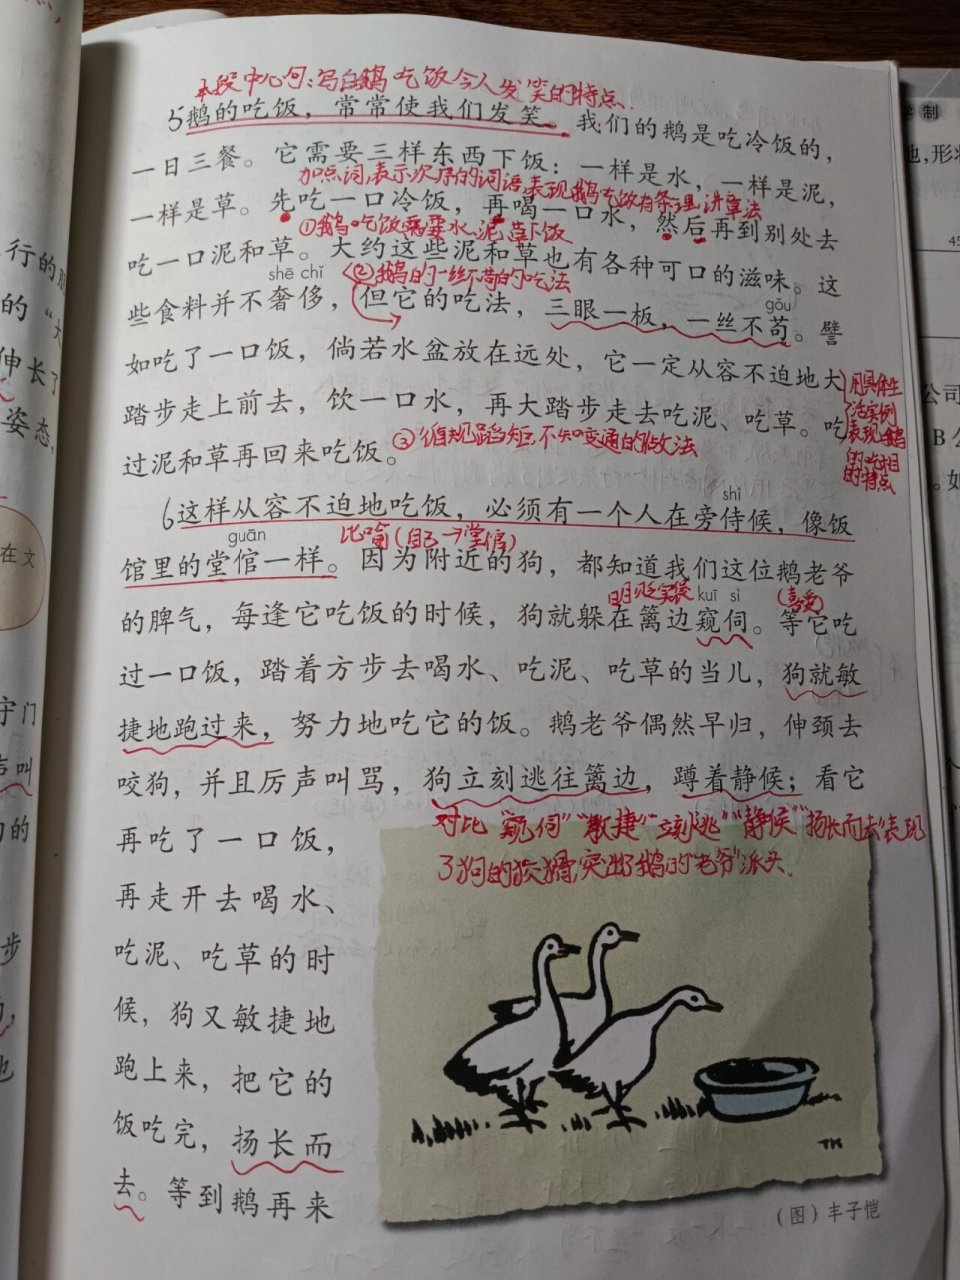 本段中心句：写白鹅吃饭令人发笑的特点.
5鹅的吃饭，常常使我们发笑。我们的鹅是吃冷饭的，
一日三餐。它需要三样东西下饭：一样是水，一样是泥，
加点词,表示次序的词语,表现鹅吃饭有条理,讲章法
一样是草。先吃一口冷饭，再喝一口水，然后再到别处去
①鹅吃饭需要水、泥、草下饭
吃一口泥和草。大约这些泥和草也有各种可口的滋味。这
shē chǐ
②鹅的一丝不苟的吃法
gǒu
些食料并不奢侈，但它的吃法，三眼一板，一丝不苟。譬
如吃了一口饭，倘若水盆放在远处，它一定从容不迫地大
踏步走上前去，饮一口水，再大踏步走去吃泥、吃草。吃
用具体生
活实例
表现鹅
的吃相
的特点
③循规蹈矩不知变通的做法
过泥和草再回来吃饭。
shì
6这样从容不迫地吃饭，必须有一个人在旁侍候，像饭
guān
比喻(自己→堂倌)
馆里的堂倌一样。因为附近的狗，都知道我们这位鹅老爷
明贬实褒
kuī sì
(喜爱)
的脾气，每逢它吃饭的时候，狗就躲在篱边窥伺。等它吃
过一口饭，踏着方步去喝水、吃泥、吃草的当儿，狗就敏
捷地跑过来，努力地吃它的饭。鹅老爷偶然早归，伸颈去
咬狗，并且厉声叫骂，狗立刻逃往篱边，蹲着静候；看它
对比 “窥伺”“敏捷”“立刻逃”“静候”“扬长而去”表现
了狗的狡猾,突出了鹅的“老爷”派头.
再吃了一口饭，
再走开去喝水、
吃泥、吃草的时
候，狗又敏捷地
跑上来，把它的
饭吃完，扬长而
去。等到鹅再来
TK
（图）丰子恺
行的
的“大
伸长了
姿态，
在文
守门
声叫
的
步
也
学制
也,形
45
公司
B公
。如